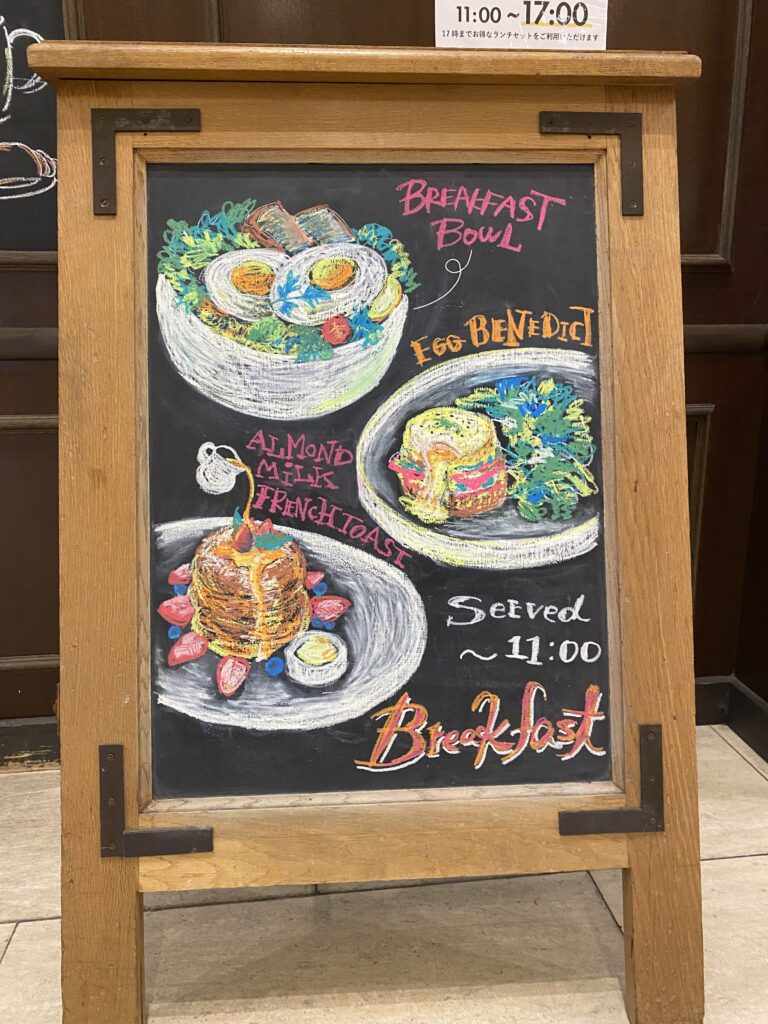 11:00 ~17:00
17時までお得なランチセットをご利用いただけます
BREAKFAST
BOWL
EGG BENEDICT
ALMOND
MiLK
FRENCH TOAST
Served
~ 11:00
Breakfast